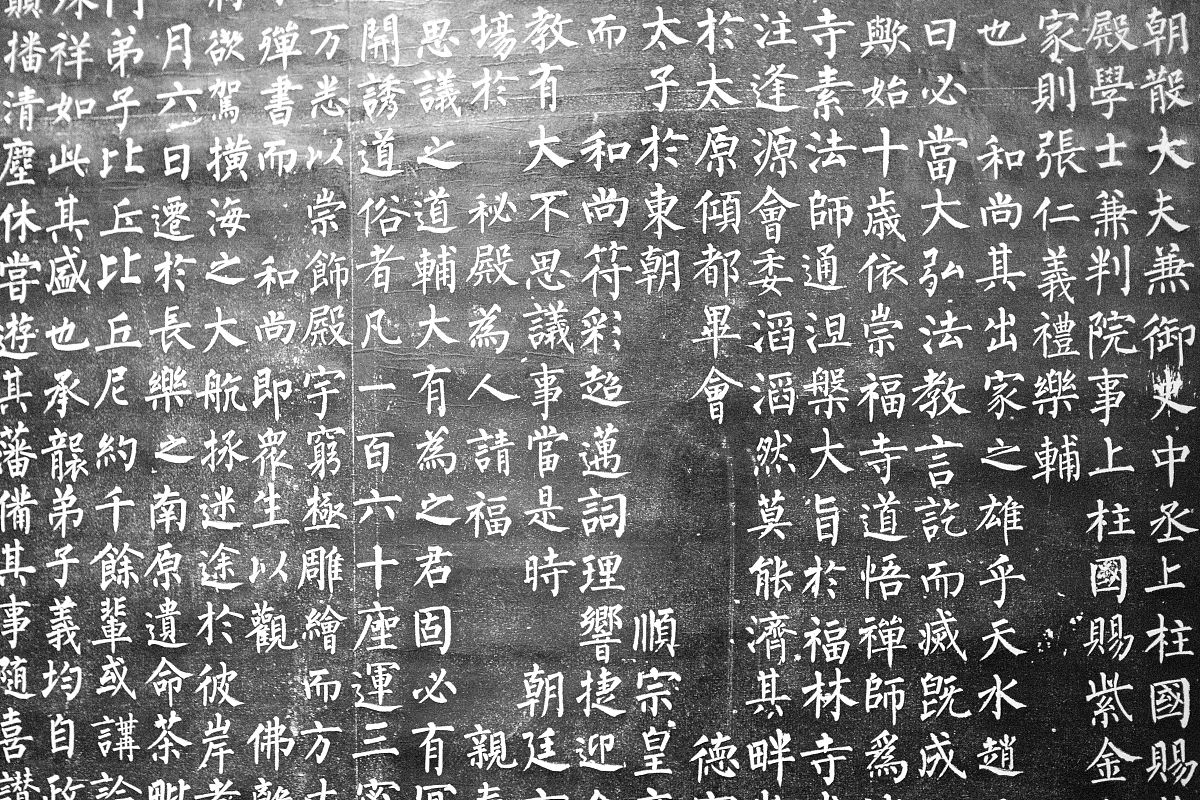 朝散大夫兼御史中丞上柱國賜
殿學士兼判院事上柱國賜紫金
家則張仁義禮樂輔
也 和尚其出家之雄乎天水趙
曰必當大弘法教言訖而滅既成
歟始十歲依崇福寺道悟禪師為
寺素法師通涅槃大旨於福林寺
注逢源會委滔滔然莫能濟其畔
於太原傾都畢會 德
太子於東朝 順宗皇
而 和尚符彩超邁詞理響捷迎
教有大不思議事當是時 朝廷
場於 秘殿為人請福 親
思議之道輔大有為之君固必有
開誘道俗者凡一百六十座運三
万恙以 崇飾殿宇窮極雕繪而方
殫書而 和尚即衆生以觀 佛
欲駕橫海之大航拯迷途於彼岸
月六日遷於長樂之南原遺命荼毗
弟子比丘比丘尼約千餘輩或講論
祥如此其盛也承襲弟子義均自政
播清塵休嘗遊其藩備其事隨喜讚